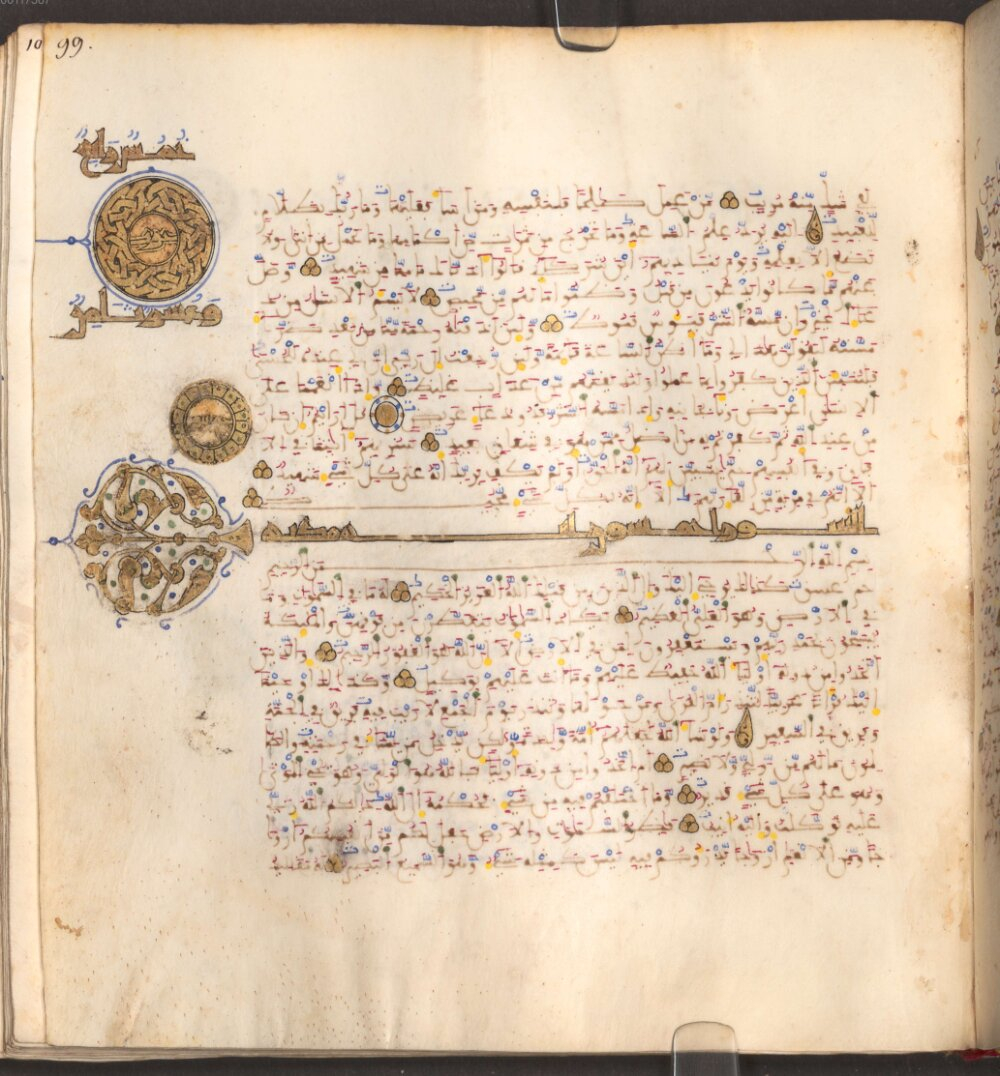 10 99.
لفي شك منه مريب من عمل صالحا فلنفسه ومن اساء فعليها وما ربك بظلام
للعبيد اليه يرد علم الساعة وما تخرج من ثمرات من اكمامها وما تحمل من انثى ولا
تضع الا بعلمه ويوم يناديهم اين شركاءي قالوا اذناك ما منا من شهيد وضل
عنهم ما كانوا يدعون من قبل وظنوا ما لهم من محيص لا يسئم الانسان من د
عاء الخير وان مسه الشر فيئوس قنوط ولئن اذقناه رحمة منا من بعد ضراء
مسته ليقولن هذا لي وما اظن الساعة قائمة ولئن رجعت الى ربي ان لي عنده للحسنى
فلننبئن الذين كفروا بما عملوا ولنذيقنهم من عذاب غليظ واذا انعمنا على
الانسان اعرض ونئا بجانبه واذا مسه الشر فذو دعاء عريض قل ارايتم ان كان
من عند الله ثم كفرتم به من اضل ممن هو في شقاق بعيد سنريهم ءاياتنا في الا
فاق وفي انفسهم حتى يتبين لهم انه الحق اولم يكف بربك انه على كل شيء شهيد
الا انهم في مرية من لقاء ربهم الا انه بكل شيء محيط
سورة
بسم الله الرحمن الرحيم
حم عسق كذلك يوحي اليك والى الذين من قبلك الله العزيز الحكيم له ما في السموت وما
في الارض وهو العلي العظيم تكاد السموت يتفطرن من فوقهن والملئكة
يسبحون بحمد ربهم ويستغفرون لمن في الارض الا ان الله هو الغفور الرحيم والذين
اتخذوا من دونه اولياء الله حفيظ عليهم وما انت عليهم بوكيل وكذلك اوحينا
اليك قرءانا عربيا لتنذر ام القرى ومن حولها وتنذر يوم الجمع لا ريب فيه فريق في الجنة
وفريق في السعير ولو شاء الله لجعلهم امة واحدة ولكن يدخل من يشاء في رحمته والظ
لمون ما لهم من ولي ولا نصير ام اتخذوا من دونه اولياء فالله هو الولي وهو يحي الموتى
وهو على كل شيء قدير وما اختلفتم فيه من شيء فحكمه الى الله ذلكم الله ربي
عليه توكلت واليه انيب فاطر السموت والارض جعل لكم من انفسكم ازوا
جا ومن الانعم ازواجا يذرؤكم فيه ليس كمثله شيء وهو السميع البصير له مقليد